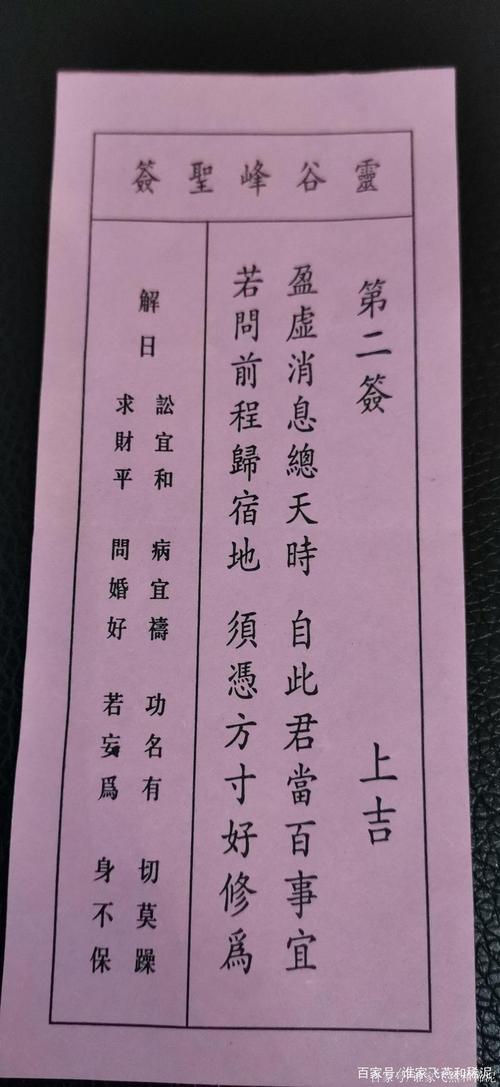 靈谷峰聖簽
第二簽 上吉
盈虛消息總天時 自此君當百事宜
若問前程歸宿地 須憑方寸好修爲
解日
訟宜和 病宜禱 功名有 切莫躁
求財平 問婚好 若妄爲 身不保
百家号/淮家飞燕和稀泥